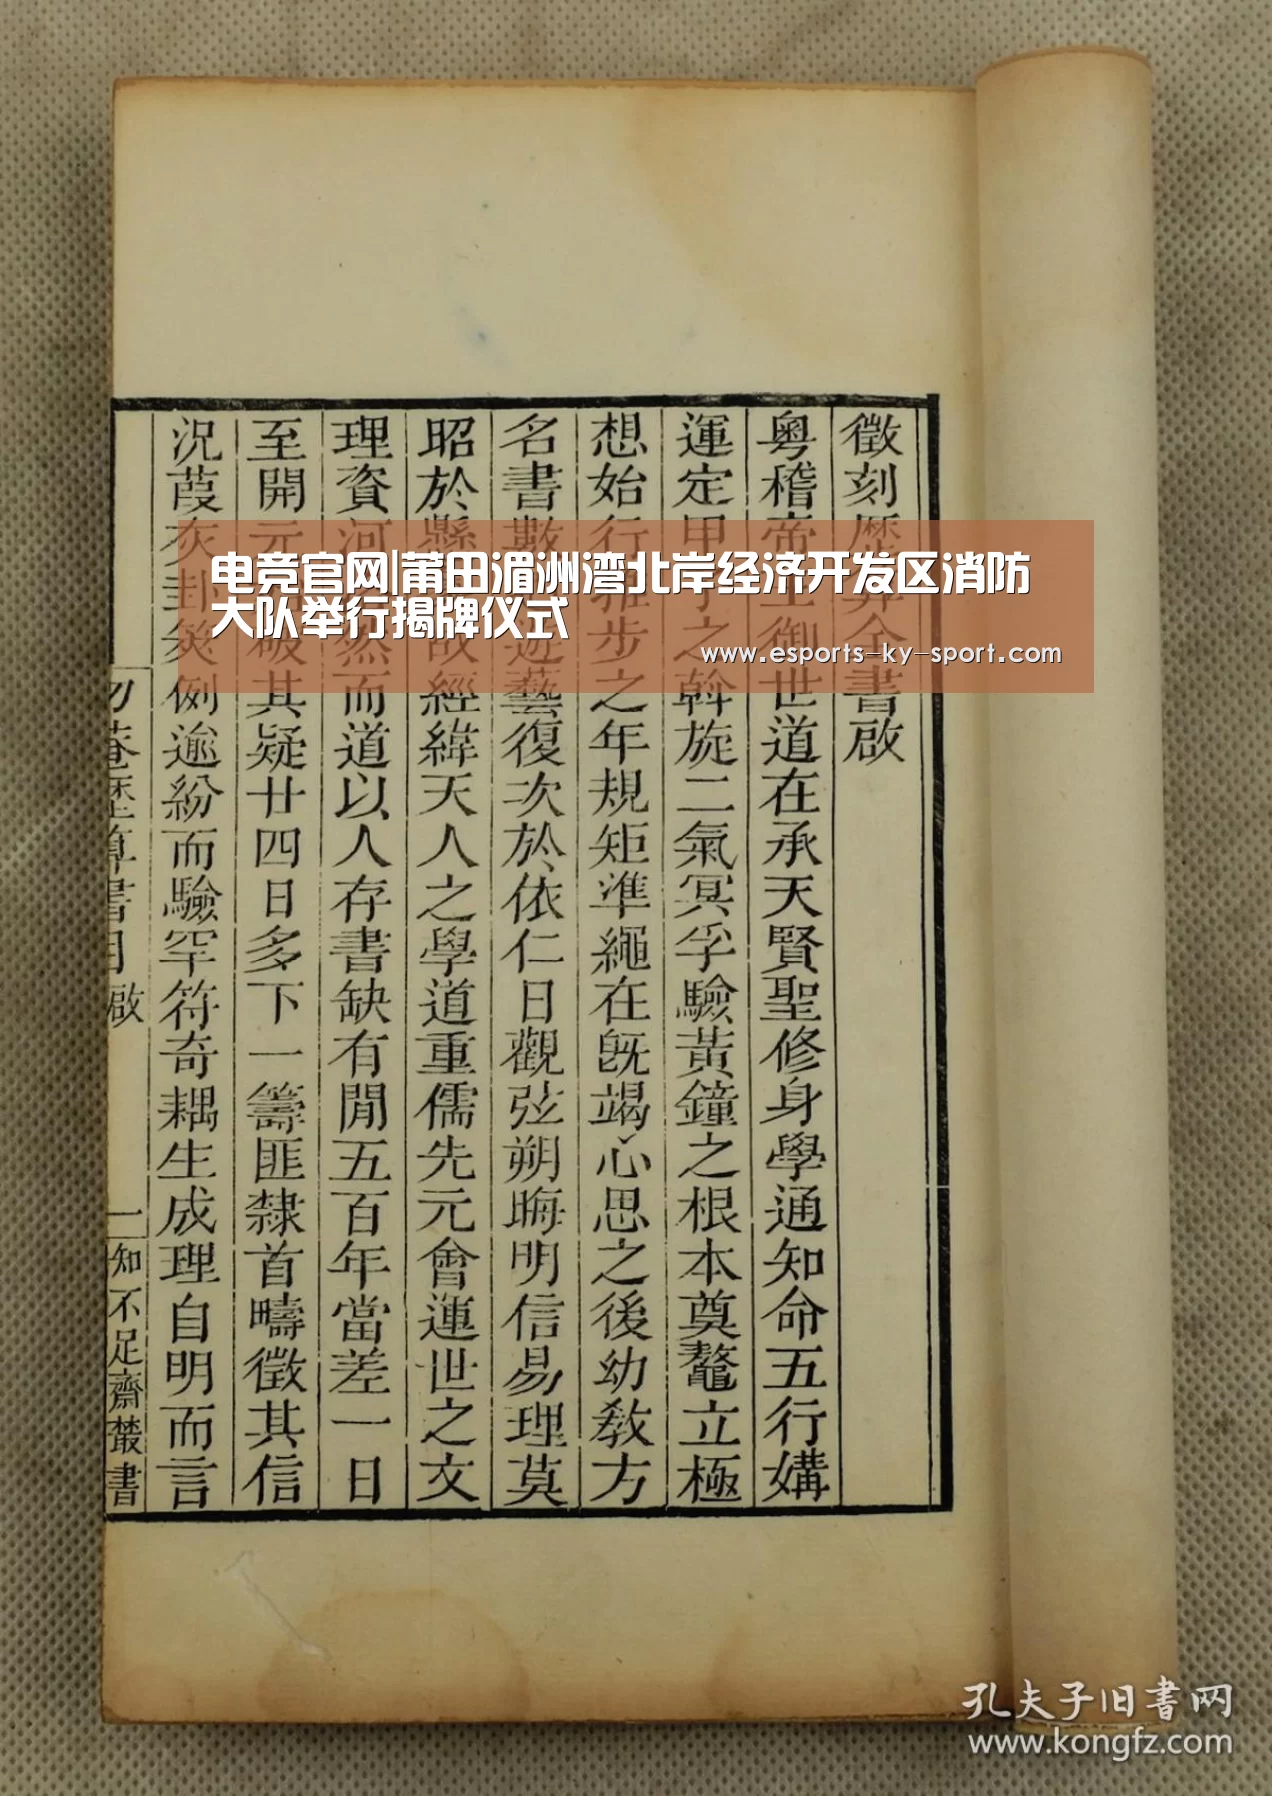 徵刻歷算全書啟
粵稽帝王御世道在承天賢聖修身學通知命五行媾
運定甲子之斡旋二氣冥孚驗黃鐘之根本奠鼇立極
想始行 步之年規矩準繩在旣竭心思之後幼敎方
名書數 遊藝復次於依仁日觀弦朔晦明信易理莫
昭於懸 故經緯天人之學道重儒先元會運世之文
理資河 然而道以人存書缺有閒五百年當差一日
至開元 破其疑廿四日多下一籌匪隸首疇徵其信
況葭灰卦筴例逾紛而驗罕符奇耦生成理自明而言
勿菴歷算書目 啟 一 知不足齋叢書
电竞官网|莆田湄洲湾北岸经济开发区消防
大队举行揭牌仪式
www.esports-ky-sport.com
孔夫子旧书网
www.kongfz.com